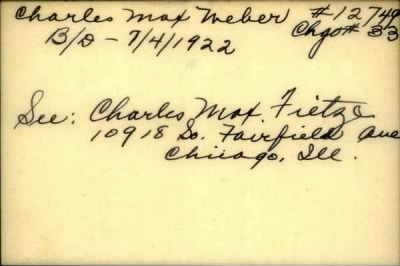 Charles Max Weber #12749
B/D - 7/4/1922 Chgo# 33
See: Charles Max. Fietze
10918 So. Fairfield Ave
Chicago, Ill.